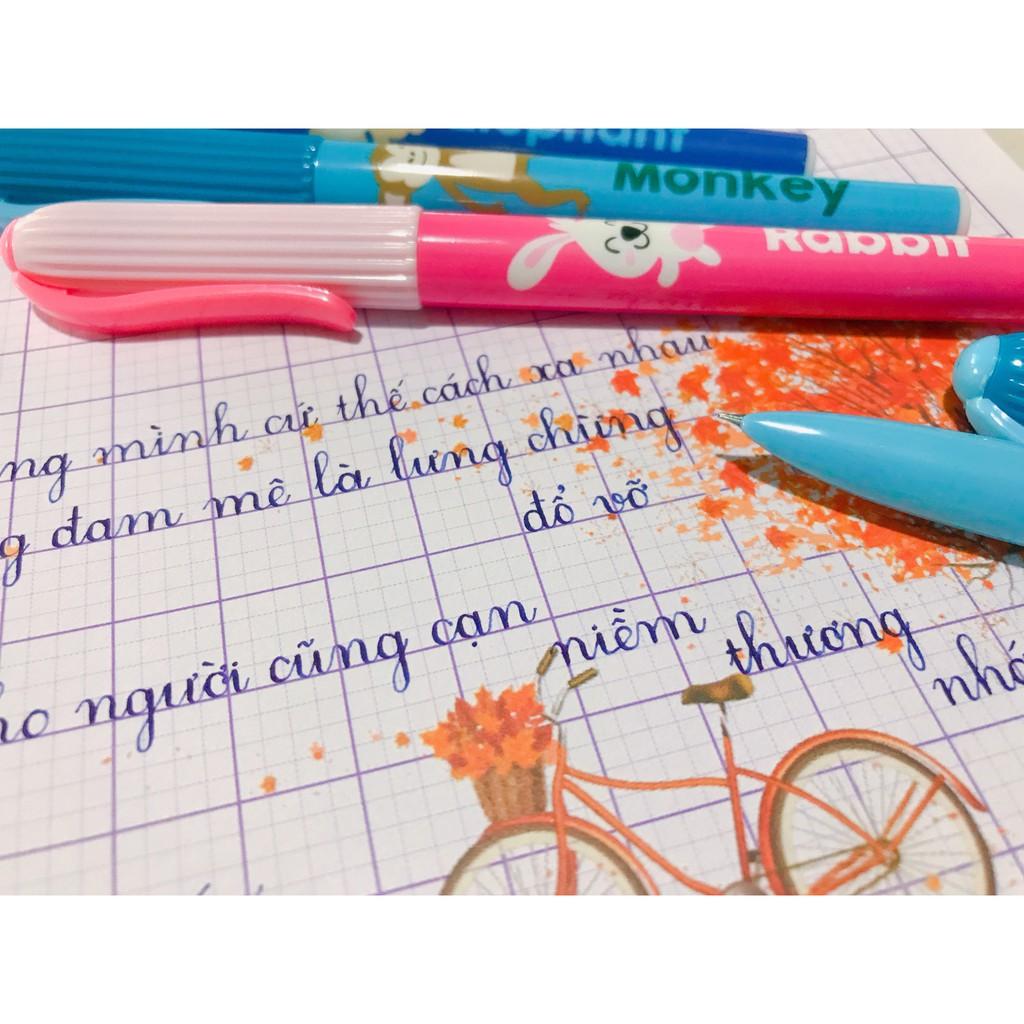 Elephant
Monkey
Rabbit
ng mình cứ thế cách xa nhau
g đam mê là lưng chừng
đổ vỡ
ho người cũng cạn niềm thương
nhớ